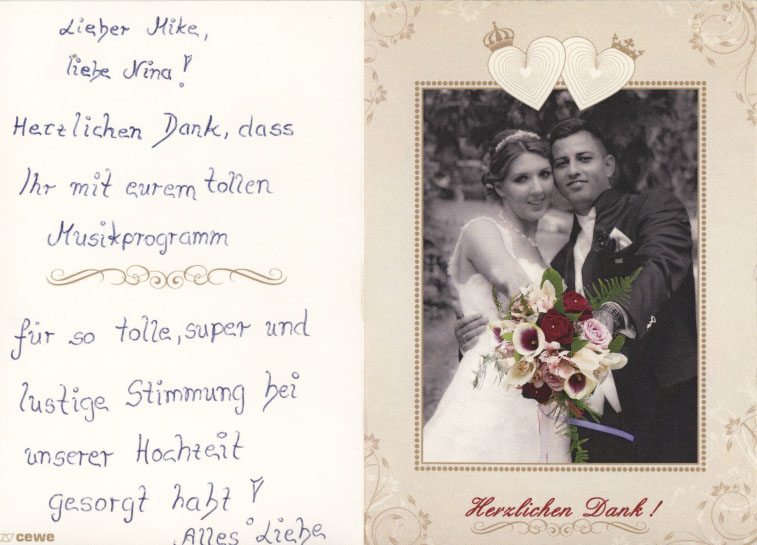 Lieber Mike,
liebe Nina!
Herzlichen Dank, dass
Ihr mit eurem tollen
Musikprogramm
für so tolle, super und
lustige Stimmung bei
unserer Hochzeit
gesorgt habt!
Alles Liebe
cewe
Herzlichen Dank!